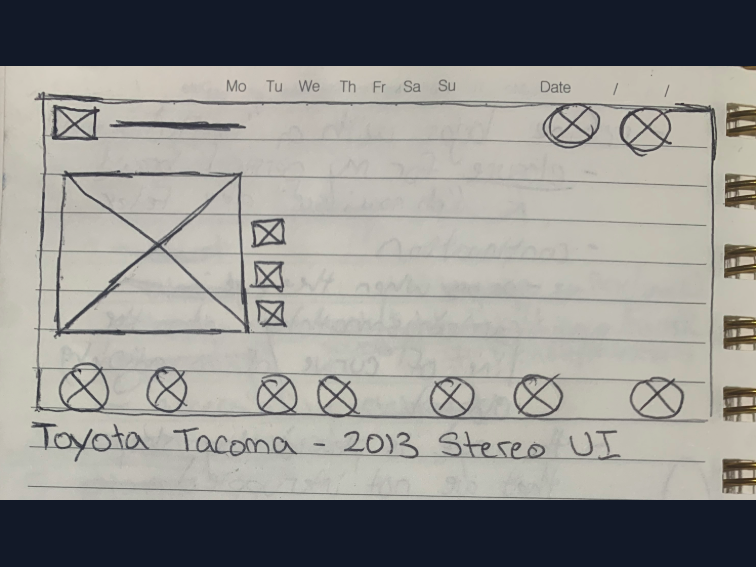 Mo Tu We Th Fr Sa Su Date / /
Toyota Tacoma - 2013 Stereo UI